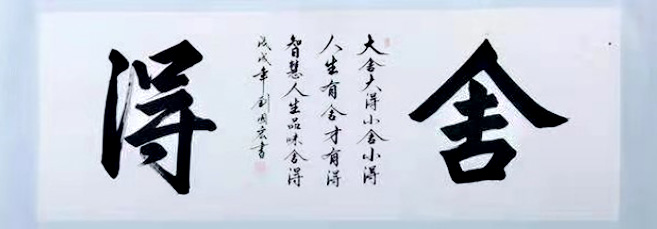 舍
大舍大得小舍小得
人生有舍才有得
智慧人生品味舍得
戊戌年刘国宏书
得